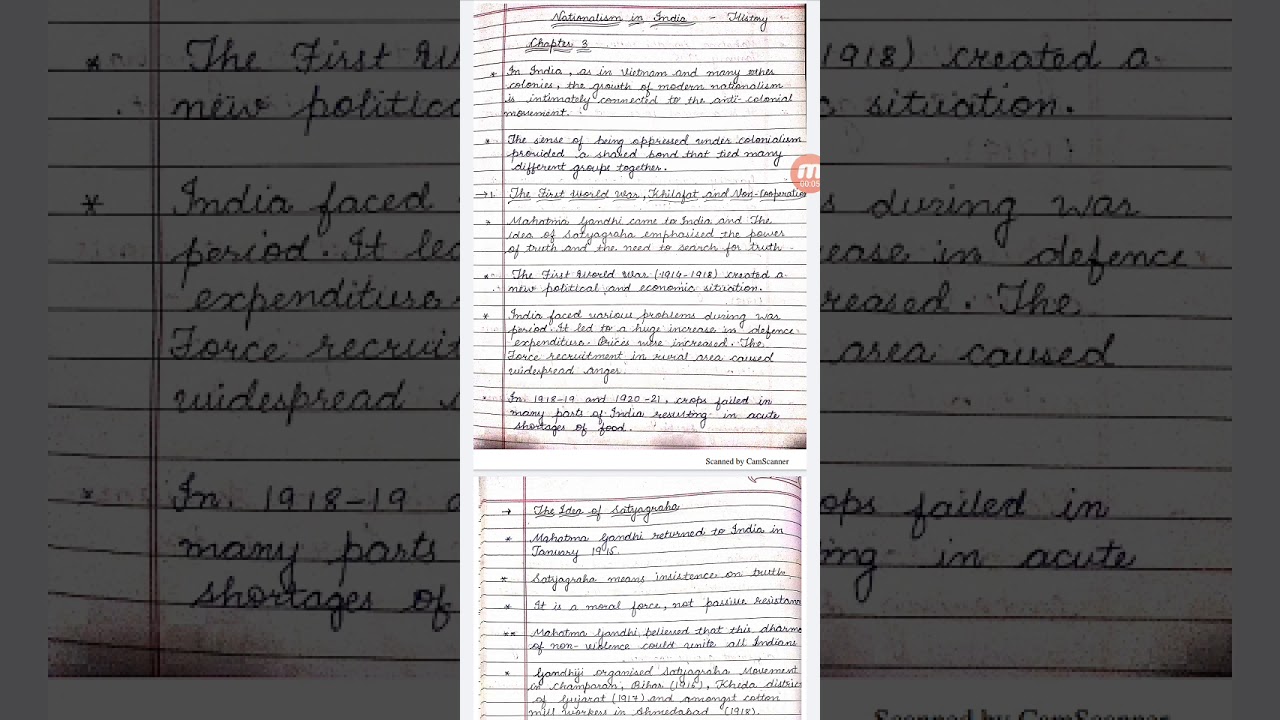 Nationalism in India - History
Chapter 3
* In India, as in Vietnam and many other
colonies, the growth of modern nationalism
is intimately connected to the anti-colonial
movement.
* The sense of being oppressed under colonialism
provided a shared bond that tied many
different groups together.
→1. The First World War, Khilafat and Non-Cooperatio
* Mahatma Gandhi came to India and The
idea of Satyagraha emphasised the power
of truth and the need to search for truth
* The First World War (1914-1918) created a
new political and economic situation.
* India faced various problems during war
period. It led to a huge increase in defence
expenditure. Prices were increased. The
Force recruitment in rural area caused
widespread anger.
* In 1918-19 and 1920-21, crops failed in
many parts of India resulting in acute
shortages of food.
Scanned by CamScanner
00:05
→ The Idea of Satyagraha
* Mahatma Gandhi returned to India in
January 1915.
* Satyagraha means insistence on truth.
* It is a moral force, not passive resistan
** Mahatma Gandhi believed that this dharma
of non-violence could unite all Indians
* Gandhiji organised Satyagraha Movement
in Champaran, Bihar (1916), Kheda distric
of Gujarat (1917) and amongst cotton
mill workers in Ahmedabad (1918).